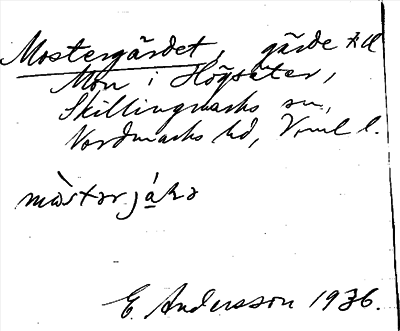 Mostergärdet, gärde till
Mon i Högsäter,
Skillingmarks sn,
Nordmarks hd, Vrml l.
mòstərjáḷə
E. Andersson 1936.